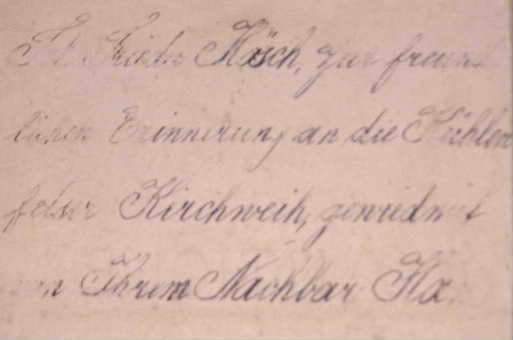 Frieda Hösch, zur freund
lichen Erinnerung an die Kühlen
felser Kirchweih, gewidmet
von Ihrem Nachbar